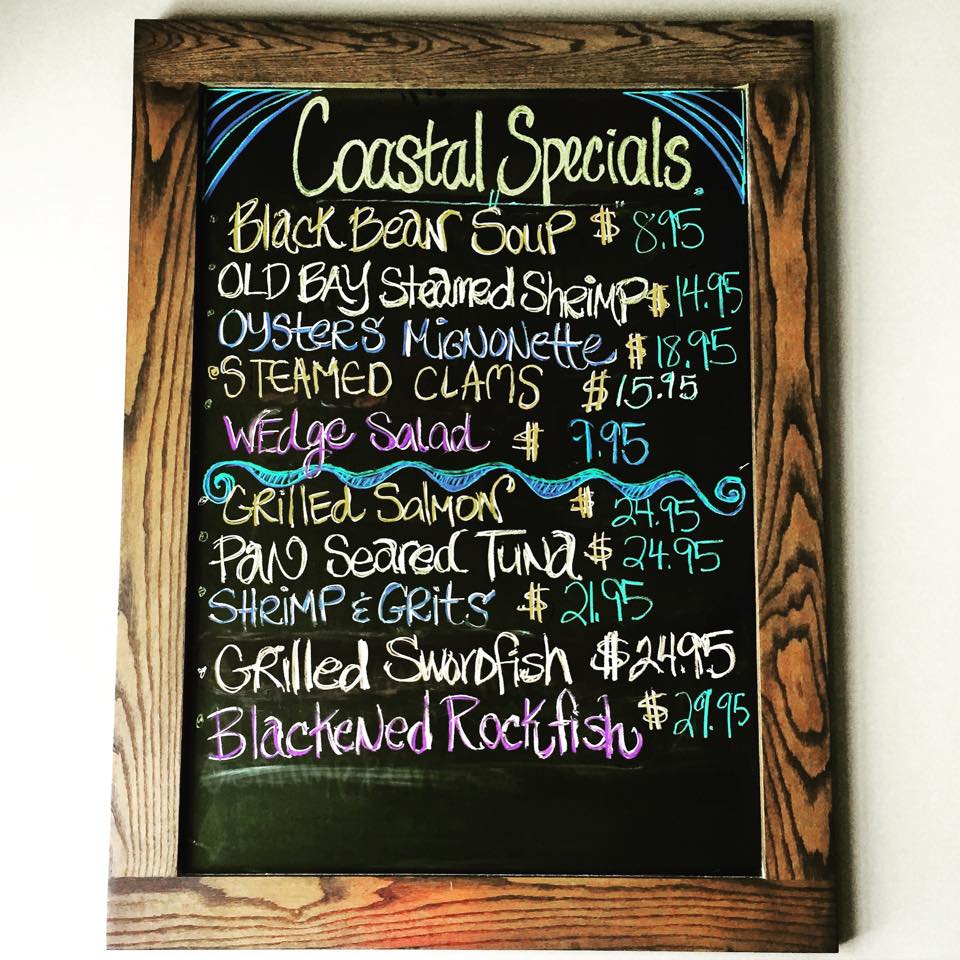 Coastal Specials
Black Bean Soup $ 8.95
OLD BAY Steamed Shrimp $ 14.95
OYSTERS MIGNONETTE $ 18.95
STEAMED CLAMS $ 15.95
WEdge Salad $ 7.95
GRILLED SALMON $ 24.95
PAN Seared TUNA $ 24.95
SHRIMP & GRITS $ 21.95
GRilled Swordfish $ 24.95
BlackeNed Rockfish $ 29.95